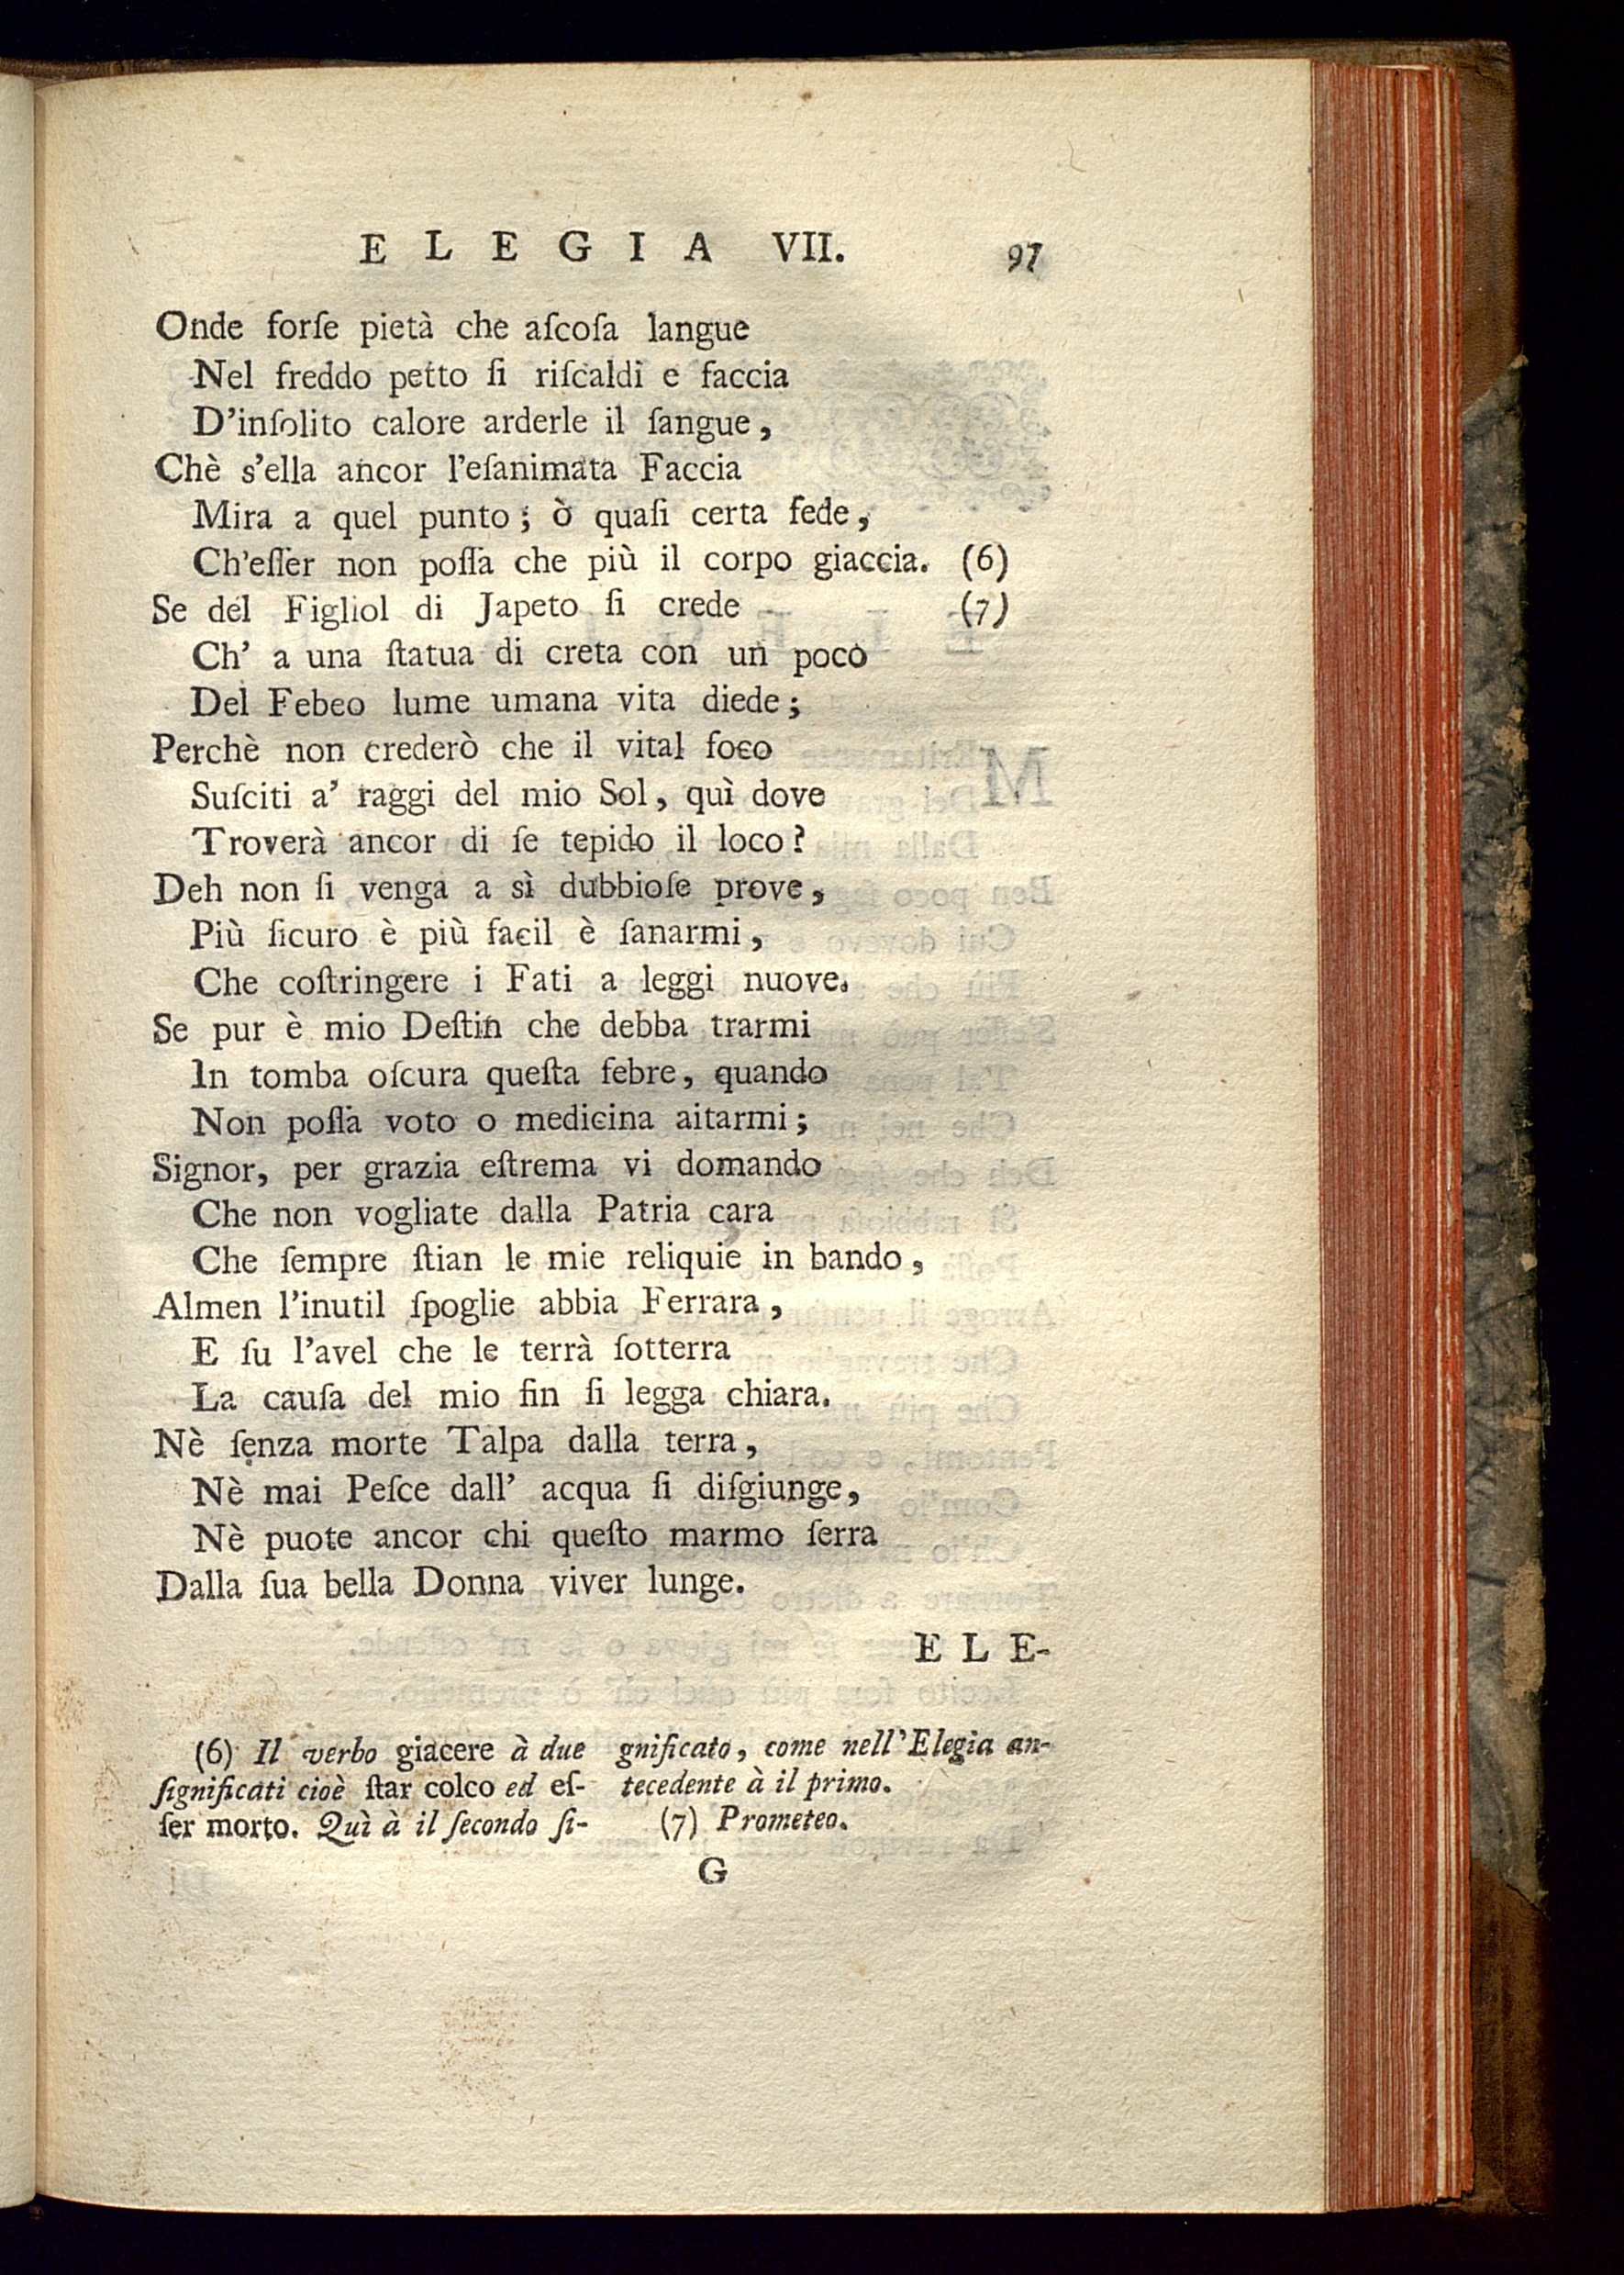 ELEGIA VII. 97
Onde forſe pietà che aſcoſa langue
Nel freddo petto ſi riſcaldi e faccia
D'inſolito calore arderle il ſangue,
Chè s'ella ancor l'eſanimata Faccia
Mira a quel punto; ò quaſi certa fede,
Ch'eſſer non poſſa che più il corpo giaccia. (6)
Se del Figliol di Japeto ſi crede (7)
Ch' a una ſtatua di creta con un poco
Del Febeo lume umana vita diede;
Perchè non crederò che il vital foco
Suſciti a' raggi del mio Sol, quì dove
Troverà ancor di ſe tepido il loco?
Deh non ſi venga a sì dubbioſe prove,
Più ſicuro è più facil è ſanarmi,
Che coſtringere i Fati a leggi nuove.
Se pur è mio Deſtin che debba trarmi
In tomba oſcura queſta febre, quando
Non poſſa voto o medicina aitarmi;
Signor, per grazia eſtrema vi domando
Che non vogliate dalla Patria cara
Che ſempre ſtian le mie reliquie in bando,
Almen l'inutil ſpoglie abbia Ferrara,
E ſu l'avel che le terrà ſotterra
La cauſa del mio fin ſi legga chiara.
Nè ſenza morte Talpa dalla terra,
Nè mai Peſce dall' acqua ſi diſgiunge,
Nè puote ancor chi queſto marmo ſerra
Dalla ſua bella Donna viver lunge.
ELE-
(6) Il verbo giacere à due
ſignificati cioè ſtar colco ed eſ-
ſer morto. Quì à il ſecondo ſi-
gnificato, come nell'Elegia an-
tecedente à il primo.
(7) Prometeo.
G